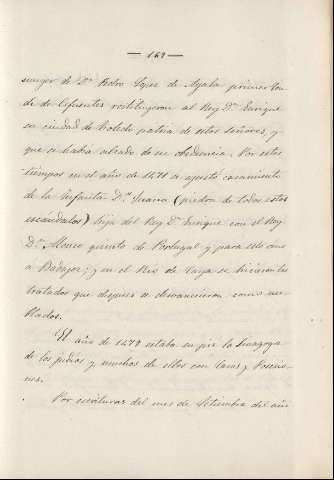 — 169 —
muger de Dn Pedro Lopez de Ayala primer Con
de de Cifuentes restituyeron al Rey Dn Enrique
su ciudad de Toledo patria de estos señores, y
que se habia alzado de su obediencia. Por estos
tiempos en el año de 1471 se ajustó casamiento
de la Infanta Da Juana (piedra de todos estos
escándalos) hija del Rey Dn Enrique con el Rey
Dn Alonso quinto de Portugal y para ello vino
á Badajoz; y en el Rio de Caya se hicieron los
tratados que despues se desvanecieron como nu-
blados.
El año de 1472 estaba en pie la Sinagoga
de los judios y muchos de ellos con Casas y Posesio-
nes.
Por escrituras del mes de Setiembre del año